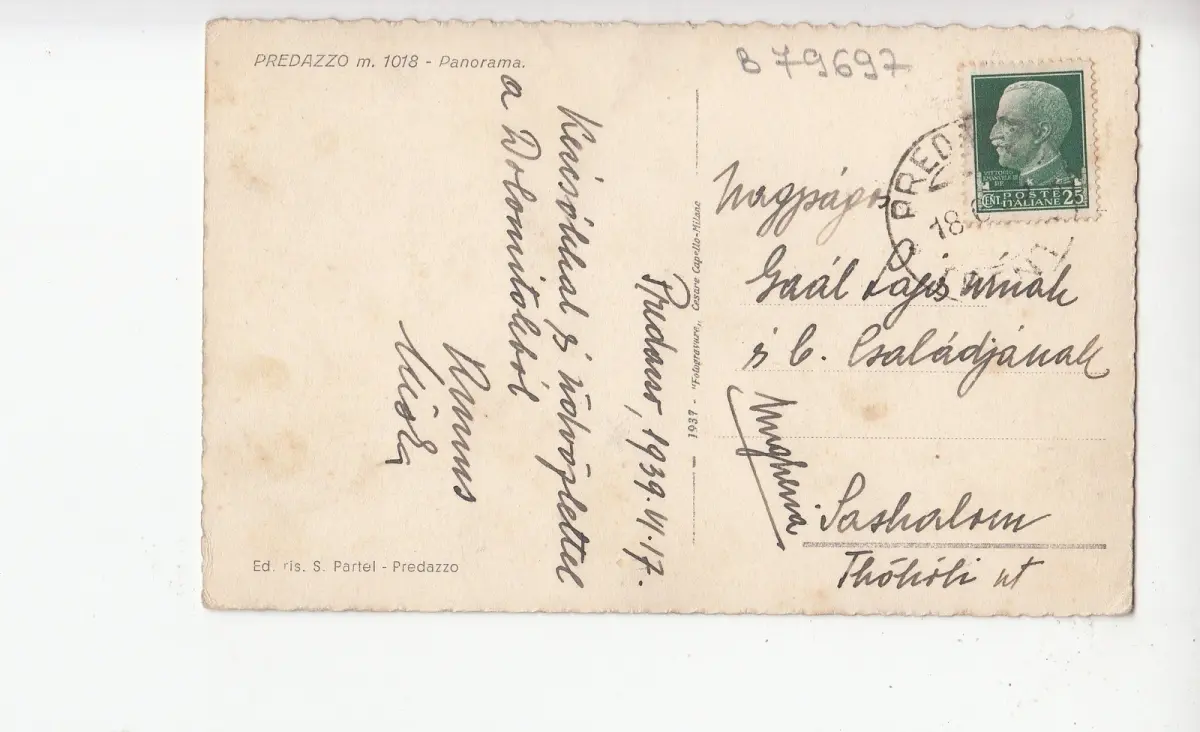 PREDAZZO m. 1018 - Panorama.
B 79697
Predazzo, 1939. VI. 17.
Kézcsókkal és üdvözlettel
a Dolomitokból
Miska
Nagyságos
Gaál Lajos úrnak
és b. Családjának
Ungheria
Sashalom
Thököli út
VITTORIO
EMANUELE III
RE
CENT. POSTE 25
ITALIANE
PRED
18
1937 - "Fotogravure„ Cesare Capello-Milano
Ed. ris. S. Partel - Predazzo